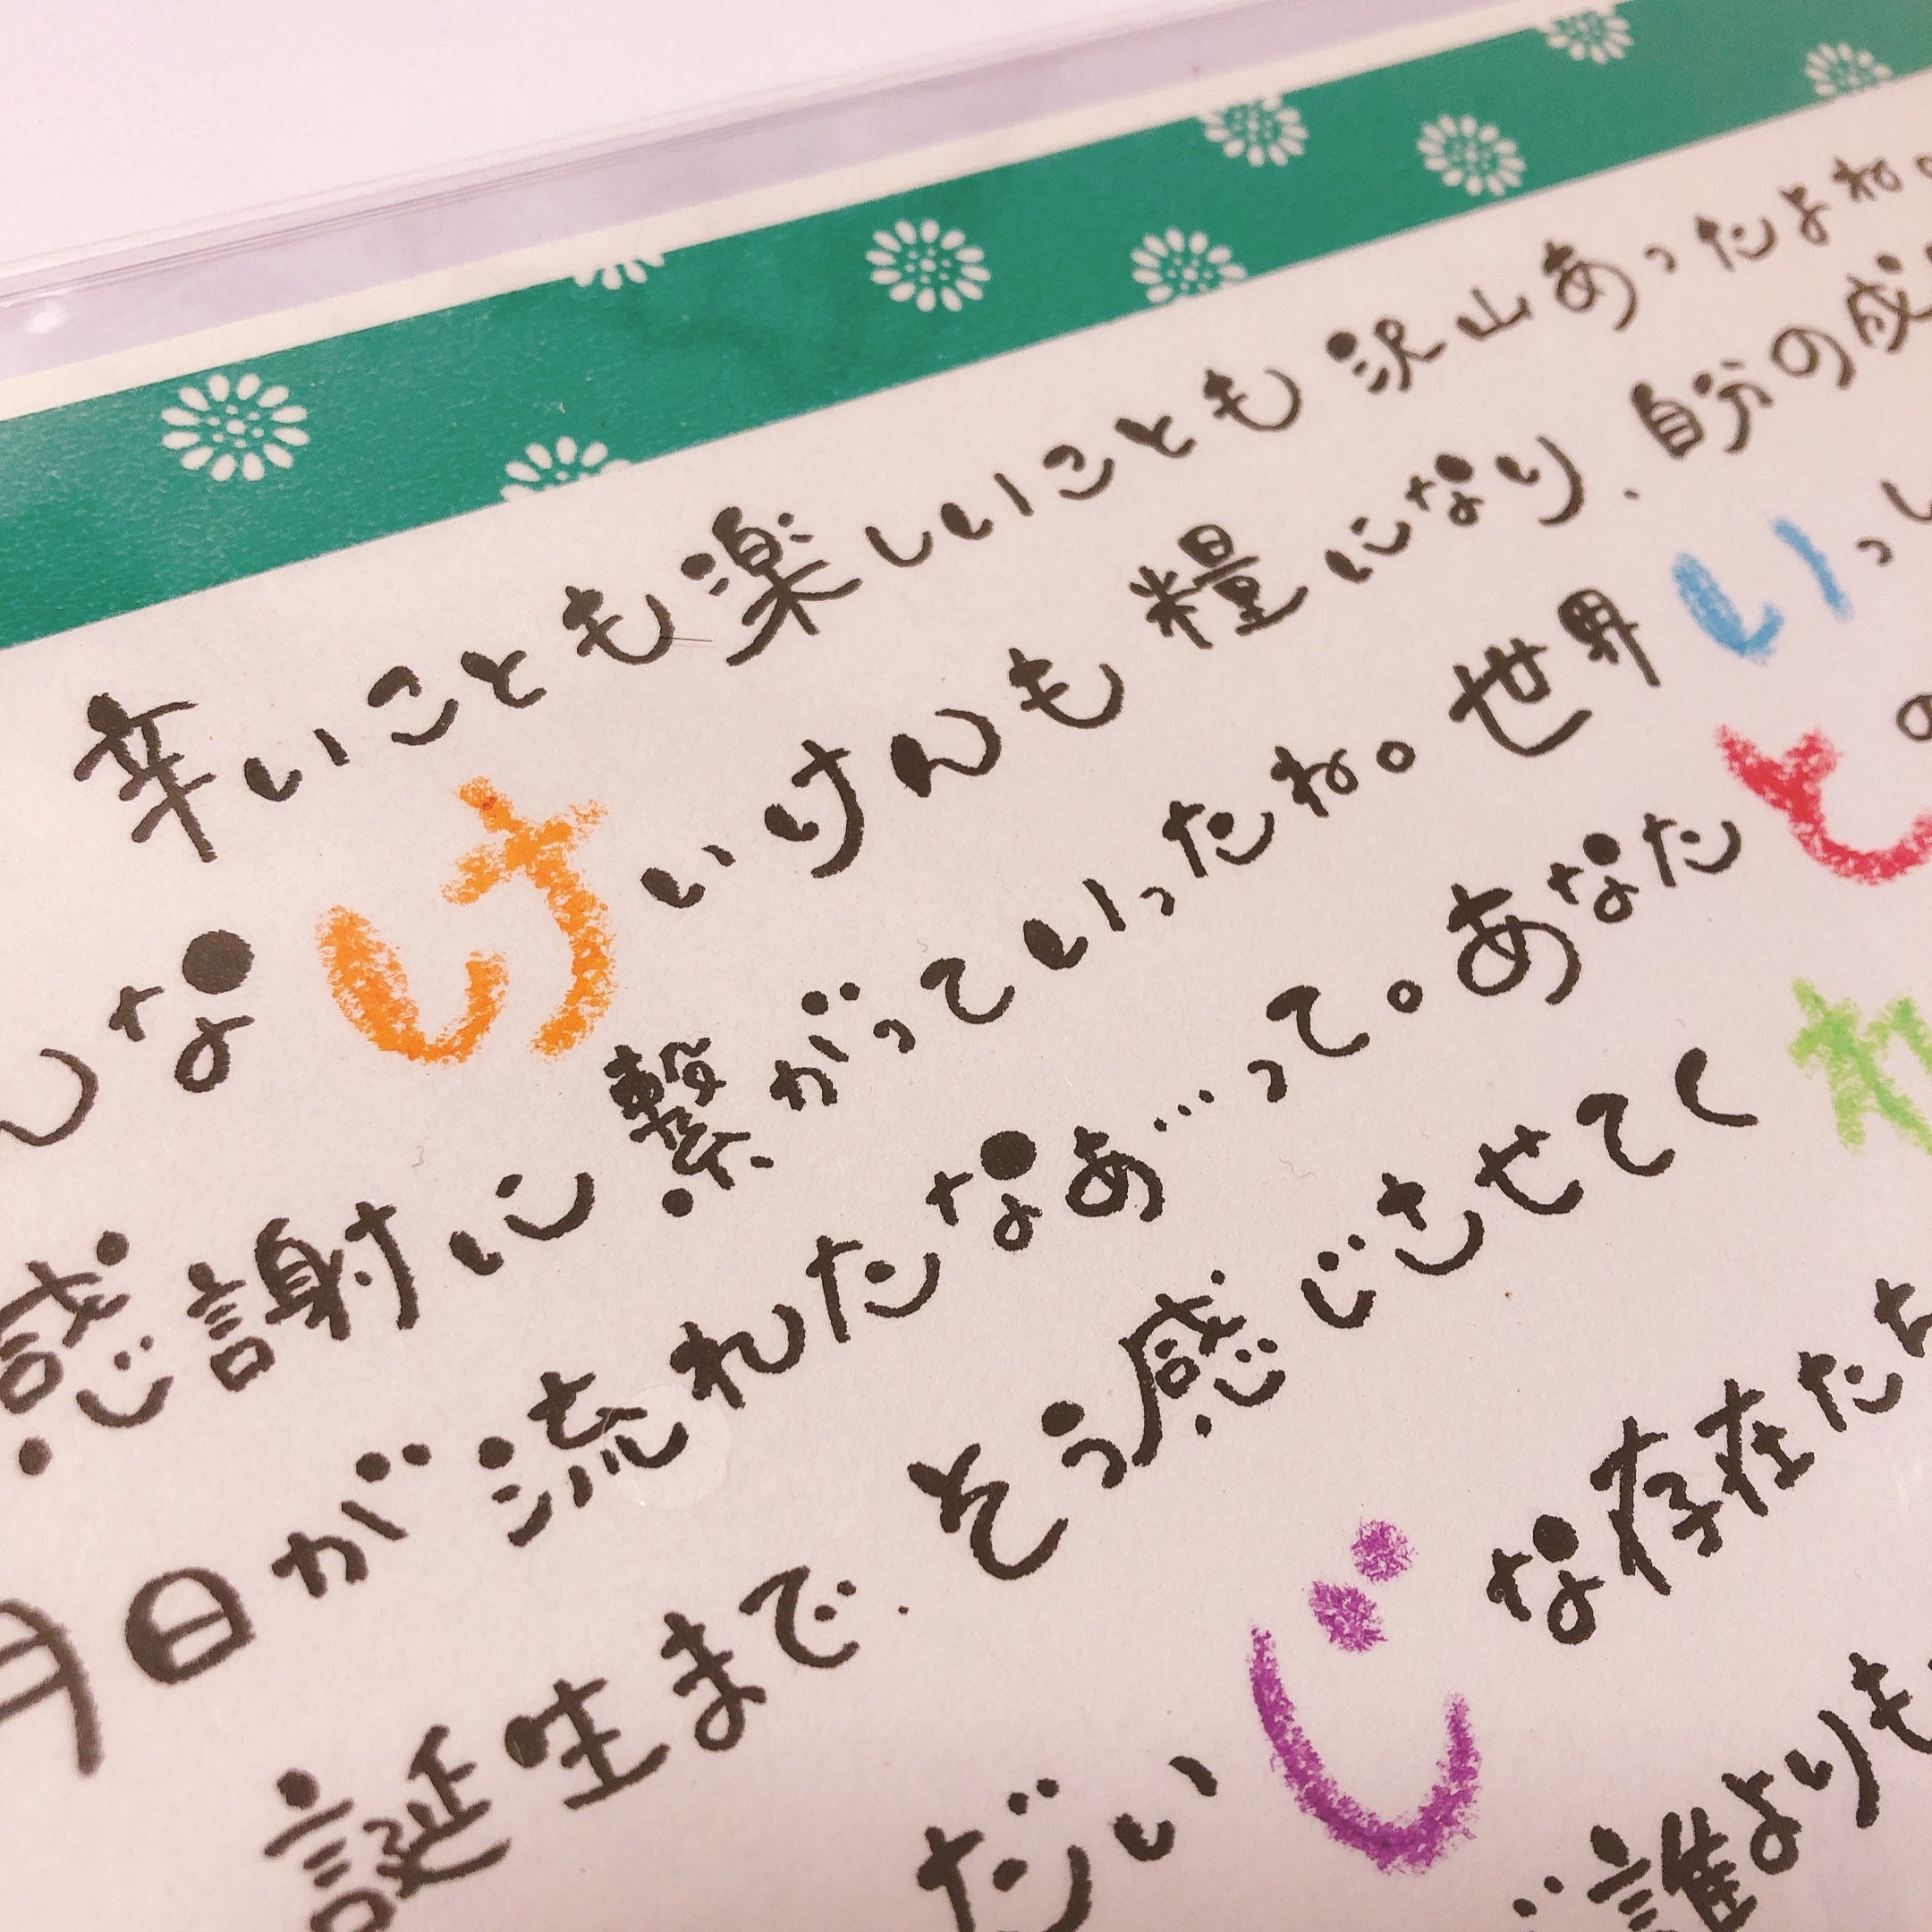 辛いことも楽しいことも沢山あったよね。
んな けいけんも 糧になり、自分の成
感謝に繋がっていったね。世界いっ
月日が流れたなぁ…って。あなたとの
誕生まで、そう感じさせてくれ
だいじな存在たち
誰よりも